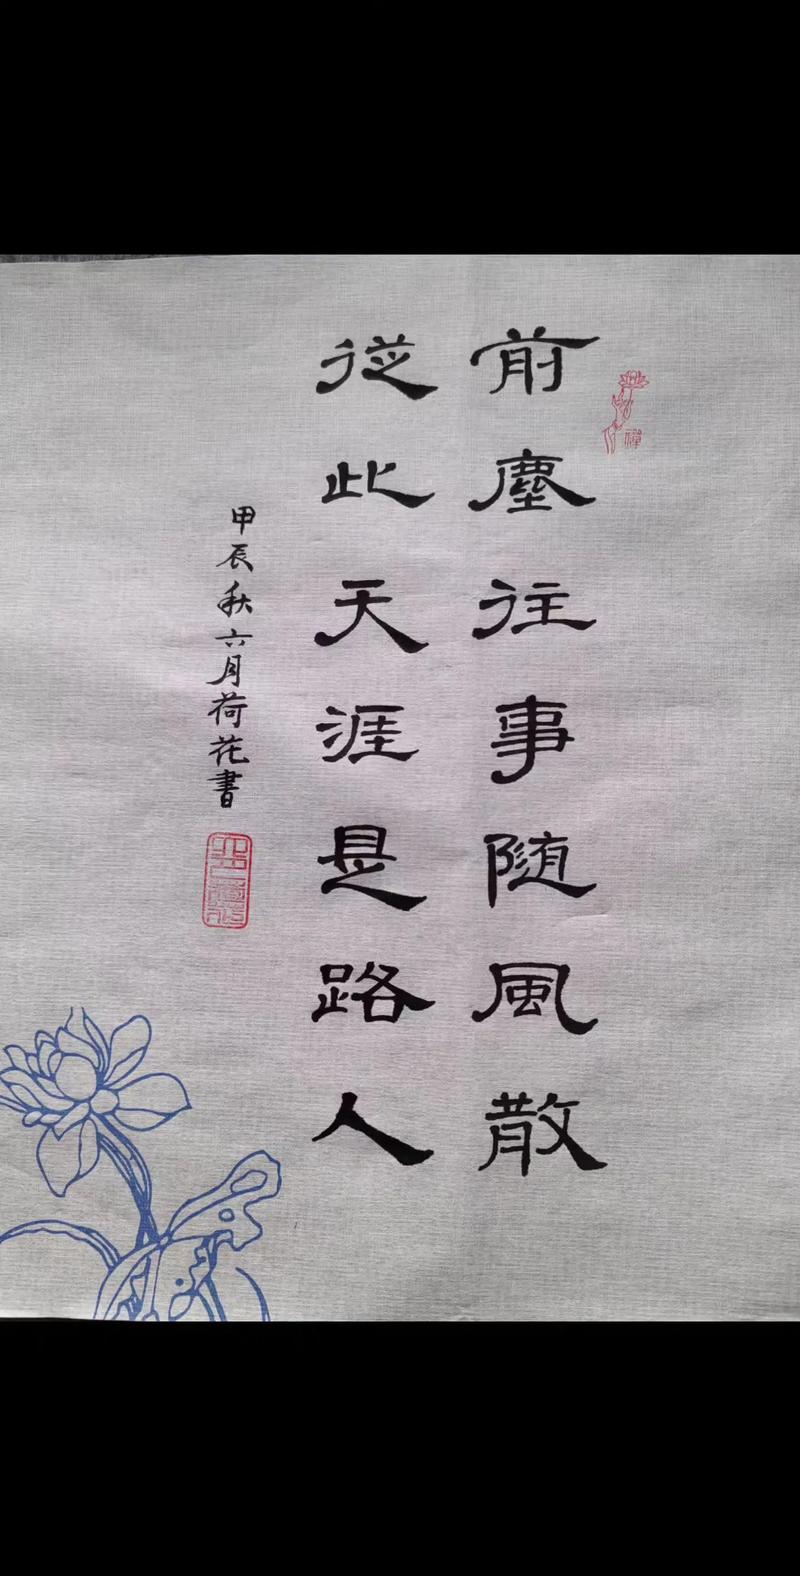 前塵往事随風散
從此天涯是路人
甲辰秋六月荷花書
禪
六月荷花